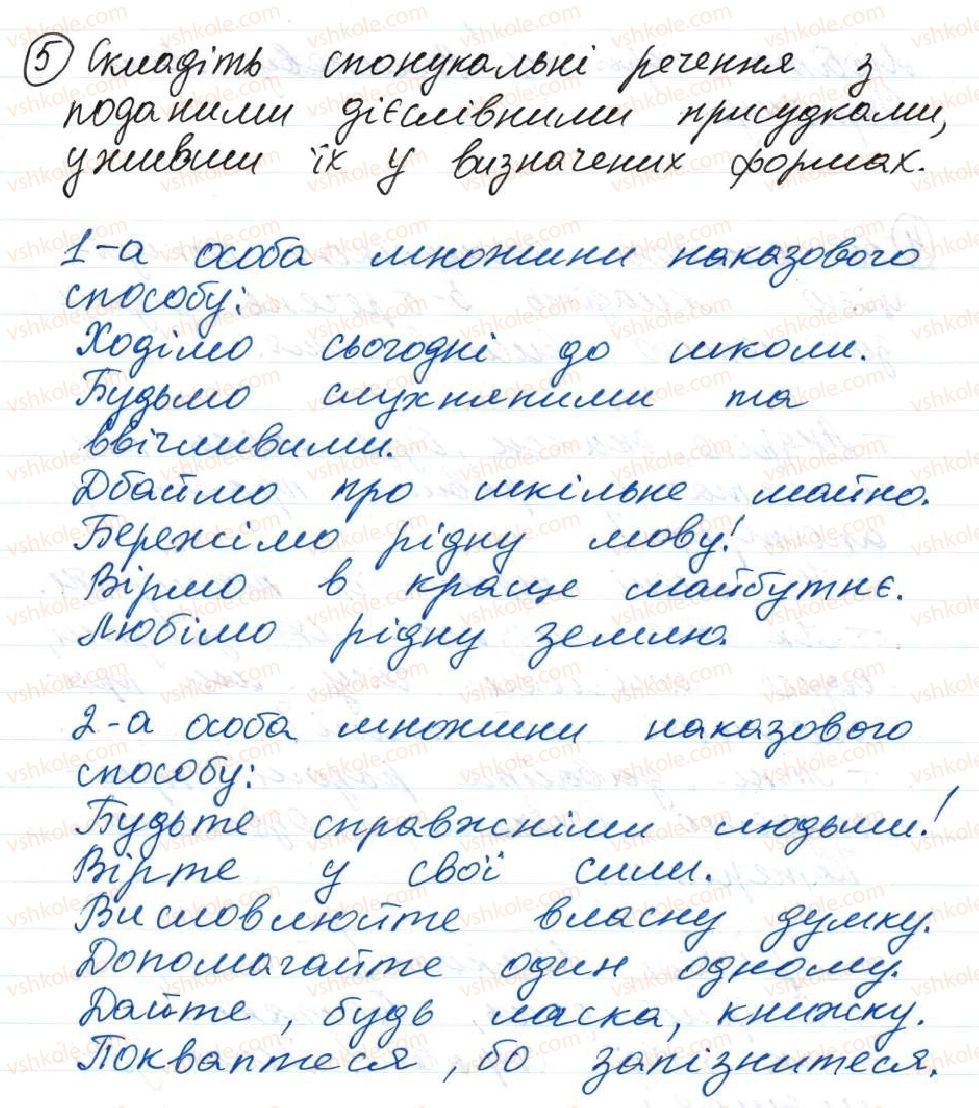 5 Складіть спонукальні речення з
поданими дієслівними присудками,
уживши їх у визначених формах.
1-а особа множини наказового
способу:
Ходімо сьогодні до школи.
Будьмо слухняними та
ввічливими.
Дбаймо про шкільне майно.
Бережімо рідну мову!
Вірмо в краще майбутнє.
Любімо рідну землю.
2-а особа множини наказового
способу:
Будьте справжніми людьми!
Вірте у свої сили.
Висловлюйте власну думку.
Допомагайте один одному.
Дайте, будь ласка, книжку.
Покваптеся, бо запізнитеся.